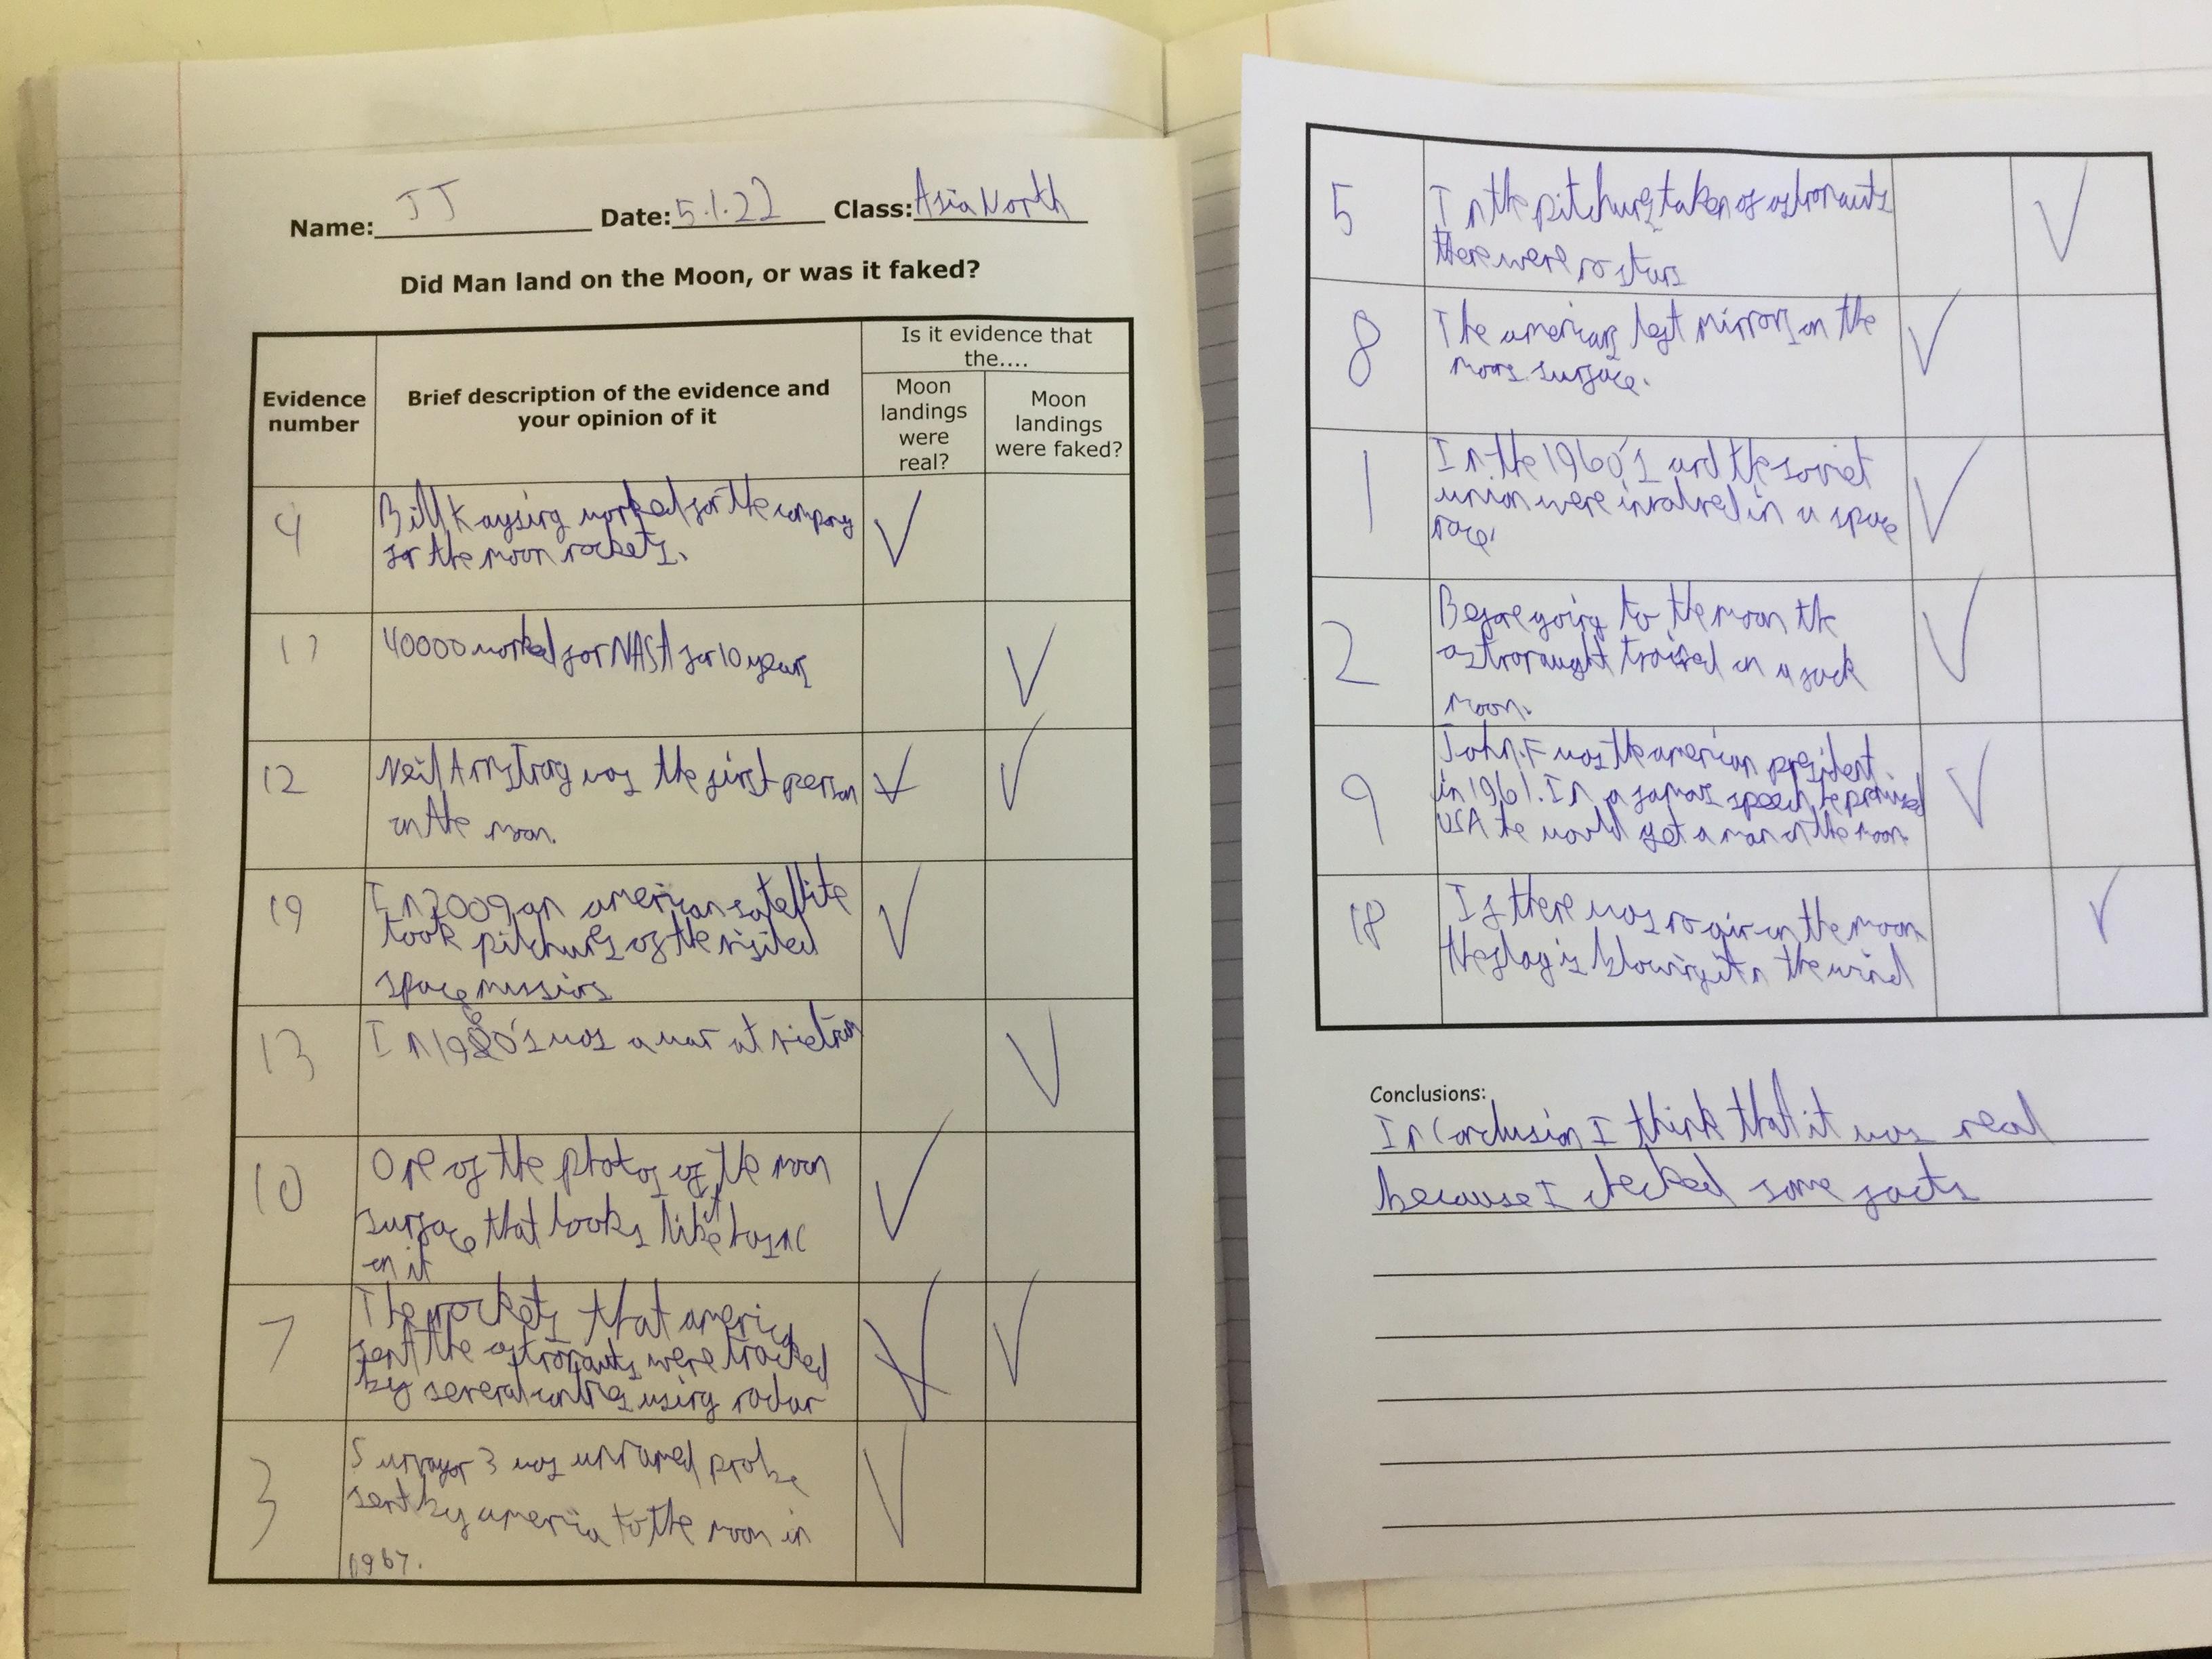 Name: JJ Date: 5.1.22 Class: Asia North
Did Man land on the Moon, or was it faked?
Evidence number
Brief description of the evidence and your opinion of it
Is it evidence that the....
Moon landings were real?
Moon landings were faked?
4
Bill Kaysing worked for the company
for the moon rockets.
17
40000 worked for NASA for 10 years
12
Neil Armstrong was the first person
on the moon.
19
In 2009, an american satellite
took pitchures of the visited
space missions
13
In 1960's was a war at
10
One of the photos of the moon
surface that looks like it has a C
on it
7
The rockets that america
sent the astronauts were tracked
by several using radar
3
Survayor 3 was unmaned probe
sent by america to the moon in
1967.
5
In the pitchures taken of astronauts
there were no stars
8
The americans left mirrors on the
moons surface.
1
In the 1960's and the soviet
union were involved in a space
race.
2
Before going to the moon the
astronaught trained on a
moon.
9
John.F was the american president
in 1961. In a famous speech he promised
USA he would get a man on the moon.
18
If there was no air on the moon
the flag is blowing in the wind
Conclusions:
In Conclusion I think that it was real
because I checked some facts